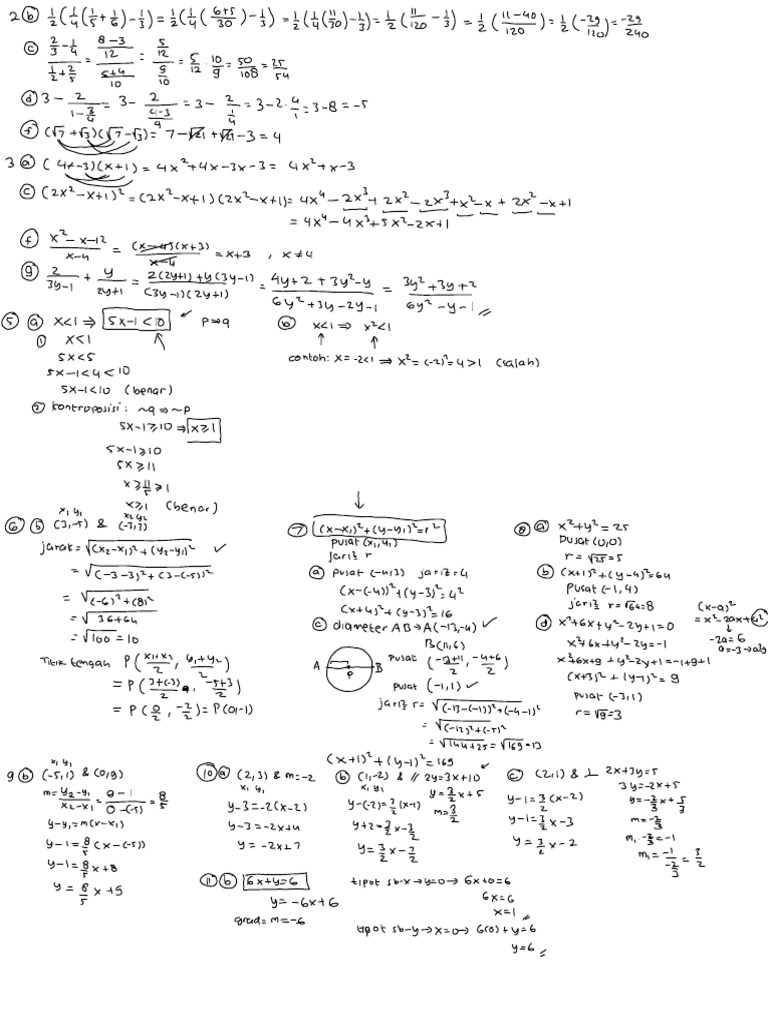 2 (b) 1/2(1/4(1/5+1/6)-1/3) = 1/2(1/4((6+5)/30)-1/3) = 1/2(1/4(11/30)-1/3) = 1/2(11/120-1/3) = 1/2((11-40)/120) = 1/2(-29/120) = -29/240
(c) (2/3-1/4)/(1/2+2/5) = ((8-3)/12)/((5+4)/10) = (5/12)/(9/10) = 5/12 · 10/9 = 50/108 = 25/54
(d) 3 - 2/(1-3/4) = 3 - 2/((4-3)/4) = 3 - 2/(1/4) = 3-2·4/1 = 3-8 = -5
(f) (√7+√3)(√7-√3) = 7-√21+√21-3 = 4
3 (a) (4x-3)(x+1) = 4x²+4x-3x-3 = 4x²+x-3
(c) (2x²-x+1)² = (2x²-x+1)(2x²-x+1) = 4x⁴-2x³+2x²-2x³+x²-x+2x²-x+1
= 4x⁴-4x³+5x²-2x+1
(f) (x²-x-12)/(x-4) = ((x-4)(x+3))/(x-4) = x+3 , x≠4
(g) 2/(3y-1) + y/(2y+1) = (2(2y+1)+y(3y-1))/((3y-1)(2y+1)) = (4y+2+3y²-y)/(6y²+3y-2y-1) = (3y²+3y+2)/(6y²-y-1)
(5) (a) x<1 ⇒ 5x-1<10 ✓ p⇒q
(1) x<1
5x<5
5x-1<4<10
5x-1<10 (benar)
(2) kontraposisi: ~q⇒~p
5x-1≥10 ⇒ x≥1
5x-1≥10
5x≥11
x≥11/5≥1
x≥1 (benar)
(b) x<1 ⇒ x²<1
↑ ↑
contoh: x=-2<1 ⇒ x²=(-2)²=4>1 (salah)
(6) (b) (3,-5) & (-3,3)
x₁ y₁ x₂ y₂
jarak = √((x₂-x₁)²+(y₂-y₁)²) ✓
= √((-3-3)²+(3-(-5))²)
= √((-6)²+(8)²
= √(36+64)
= √100 = 10
Titik tengah P((x₁+x₂)/2, (y₁+y₂)/2)
= P((3+(-3))/2, (-5+3)/2)
= P(0/2, -2/2) = P(0,-1)
↓
(7) (x-x₁)²+(y-y₁)²=r²
pusat (x₁,y₁)
jari² r
(a) pusat (-4,3) jari²=4
(x-(-4))²+(y-3)²=4²
(x+4)²+(y-3)²=16
(c) diameter AB → A(-13,-4) ✓
B(11,6)
A P B
pusat ((-13+11)/2, (-4+6)/2)
pusat (-1,1) ✓
jari² r = √((-13-(-1))²+(-4-1)²
= √((-12)²+(-5)²
= √(144+25) = √169 = 13
(x+1)²+(y-1)²=169 ✓
(8) (a) x²+y²=25
pusat (0,0)
r=√25=5
(b) (x+1)²+(y-4)²=64
pusat (-1,4)
jari² r=√64=8
(d) x²+6x+y²-2y+1=0
x²+6x+y²-2y=-1
x²+6x+9+y²-2y+1=-1+9+1
(x+3)²+(y-1)²=9
pusat (-3,1)
r=√9=3
(x-a)²
=x²-2ax+a²
↓
-2a=6
a=-3
9 (b) (-5,1) & (0,9)
x₁ y₁
m=(y₂-y₁)/(x₂-x₁)=(9-1)/(0-(-5))=8/5
y-y₁=m(x-x₁)
y-1=8/5(x-(-5))
y-1=8/5x+8
y=8/5x+9
(10) (a) (2,3) & m=-2
x₁ y₁
y-3=-2(x-2)
y-3=-2x+4
y=-2x+7
(b) (1,-2) & // 2y=3x+10
x₁ y₁
y=3/2x+5
m=3/2
y-(-2)=3/2(x-1)
y+2=3/2x-3/2
y=3/2x-7/2
(c) (2,1) & ⊥ 2x+3y=5
3y=-2x+5
y=-2/3x+5/3
m=-2/3
m₁·-2/3=-1
m₁=-1/(-2/3)=3/2
y-1=3/2(x-2)
y-1=3/2x-3
y=3/2x-2
11 (b) 6x+y=6
y=-6x+6
grad=m=-6
tipot sb-x→y=0→6x+0=6
6x=6
x=1
tipot sb-y→x=0→6(0)+y=6
y=6